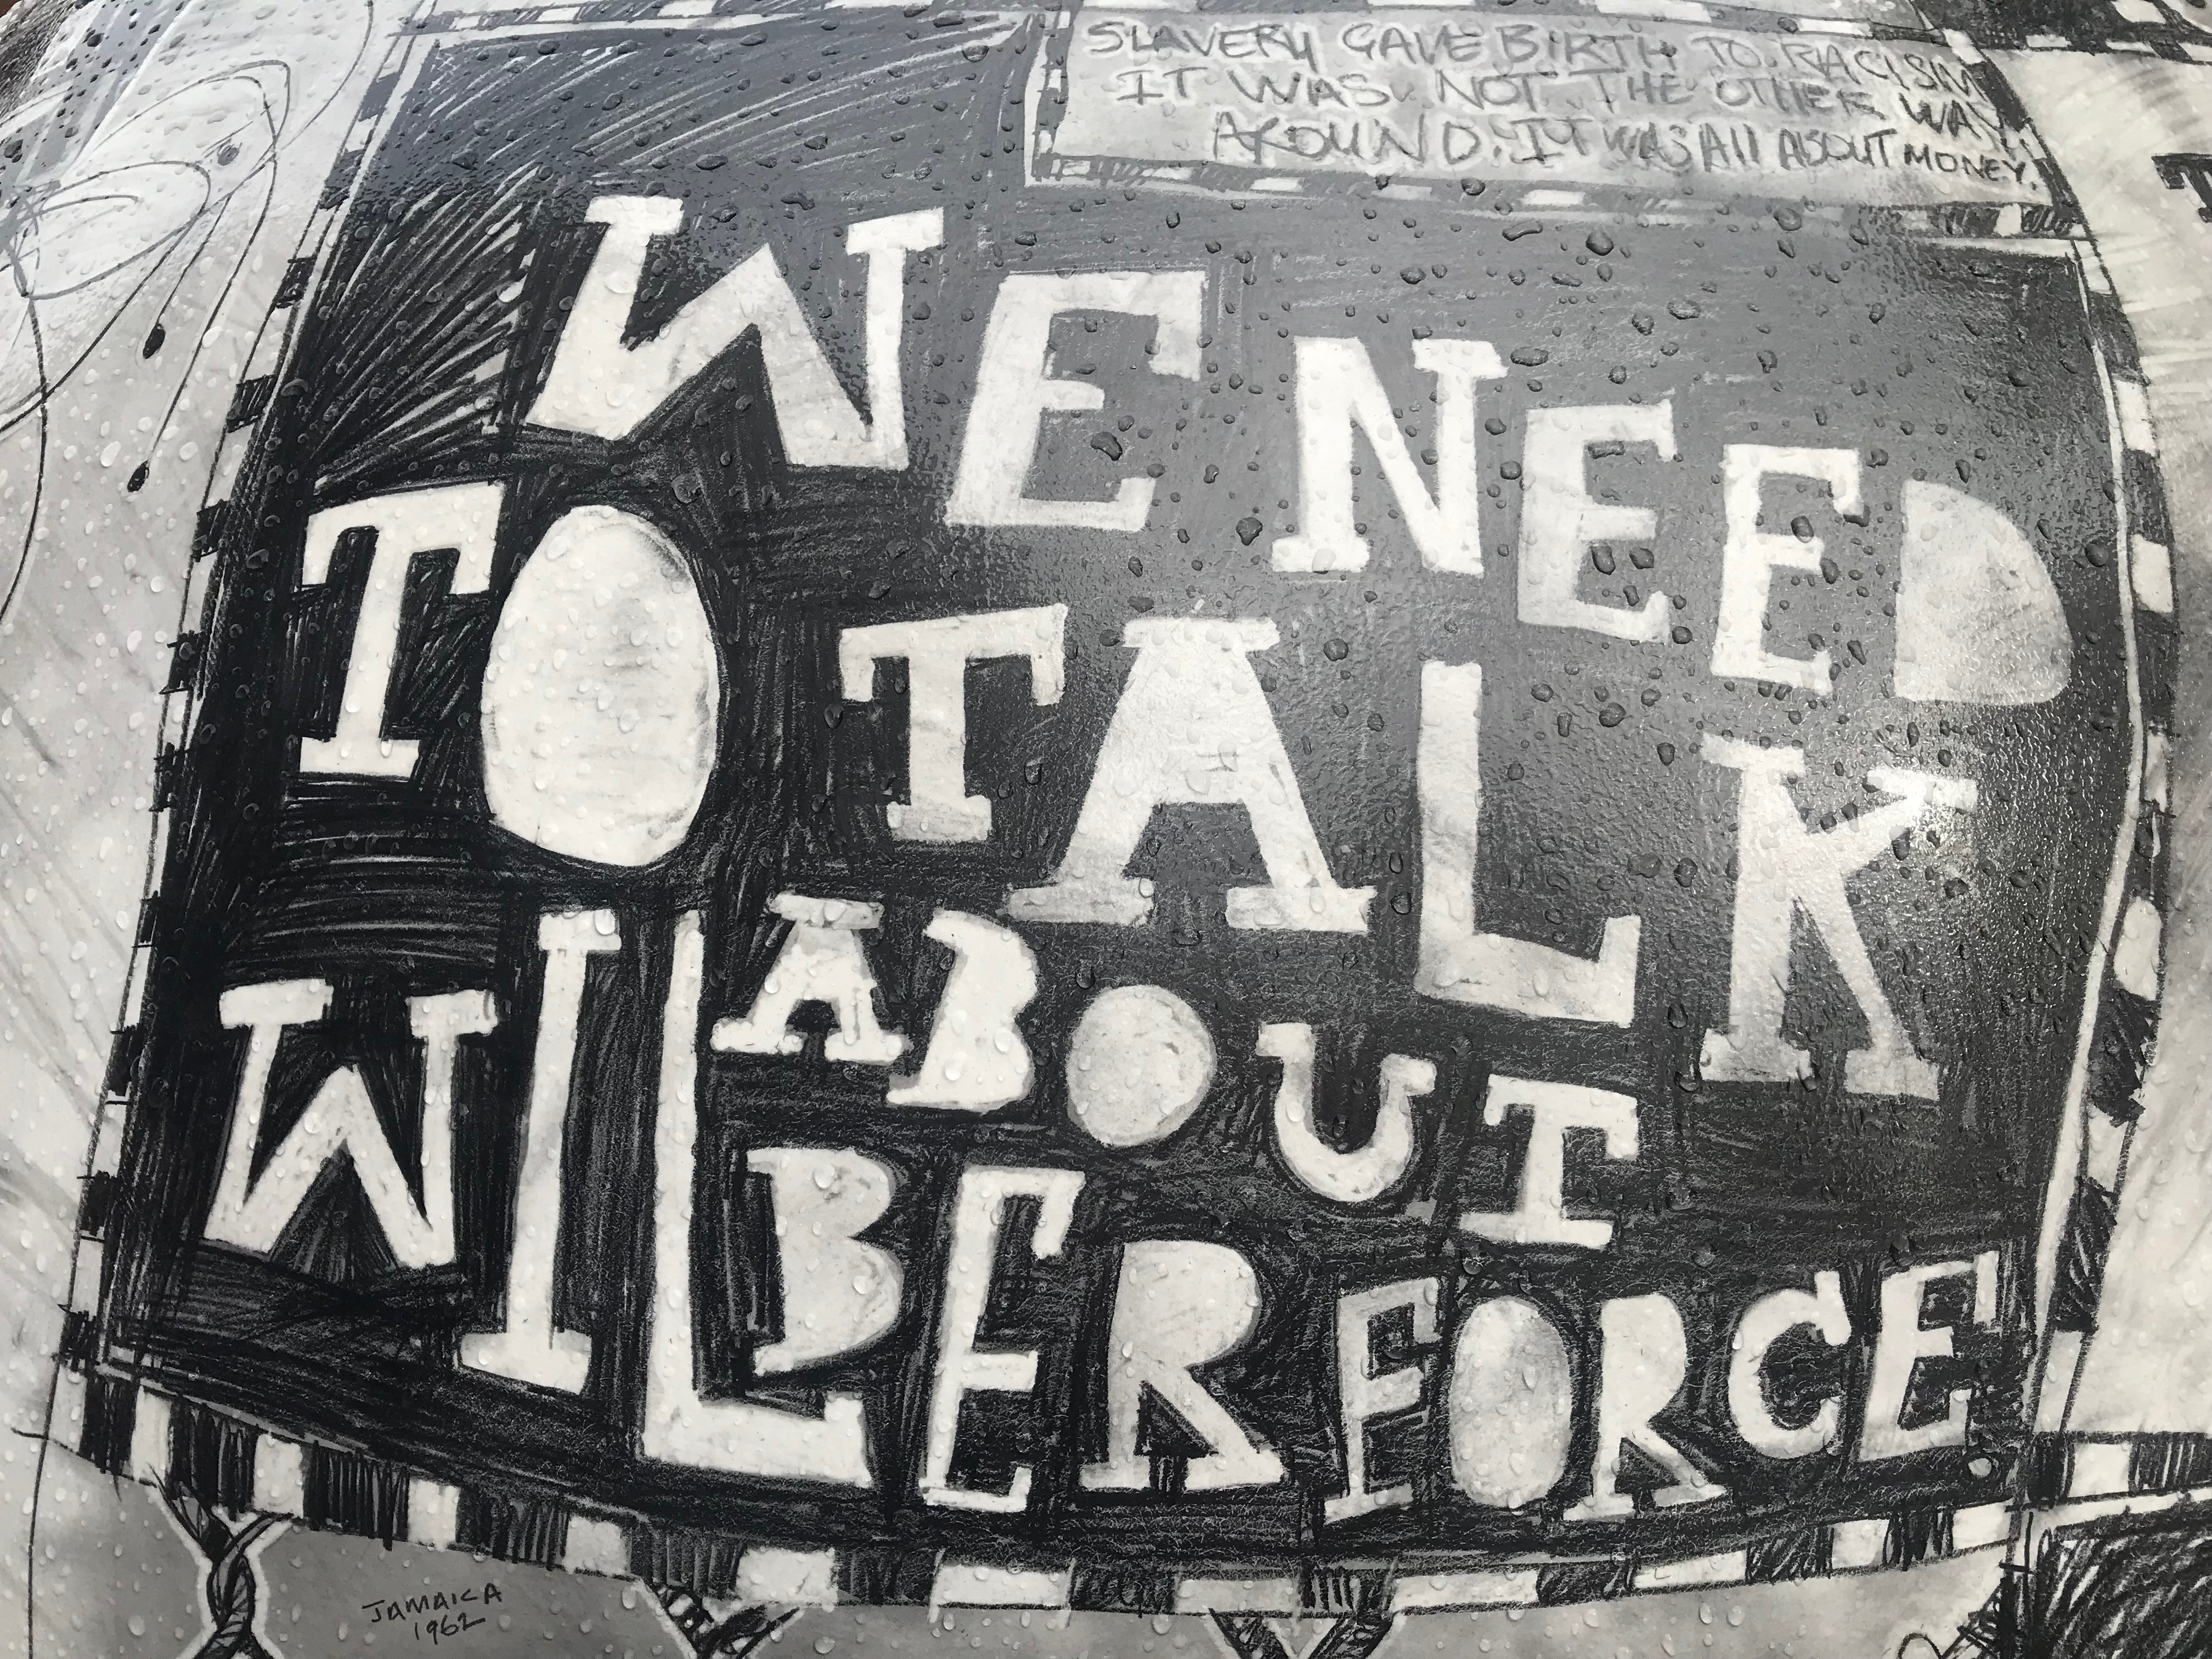 SLAVERY GAVE BIRTH TO RACISM
IT WAS NOT THE OTHER WAY
AROUND. IT WAS All ABOUT MONEY.
WE NEED
TO TALK
ABOUT
WILBERFORCE
JAMAICA
1962